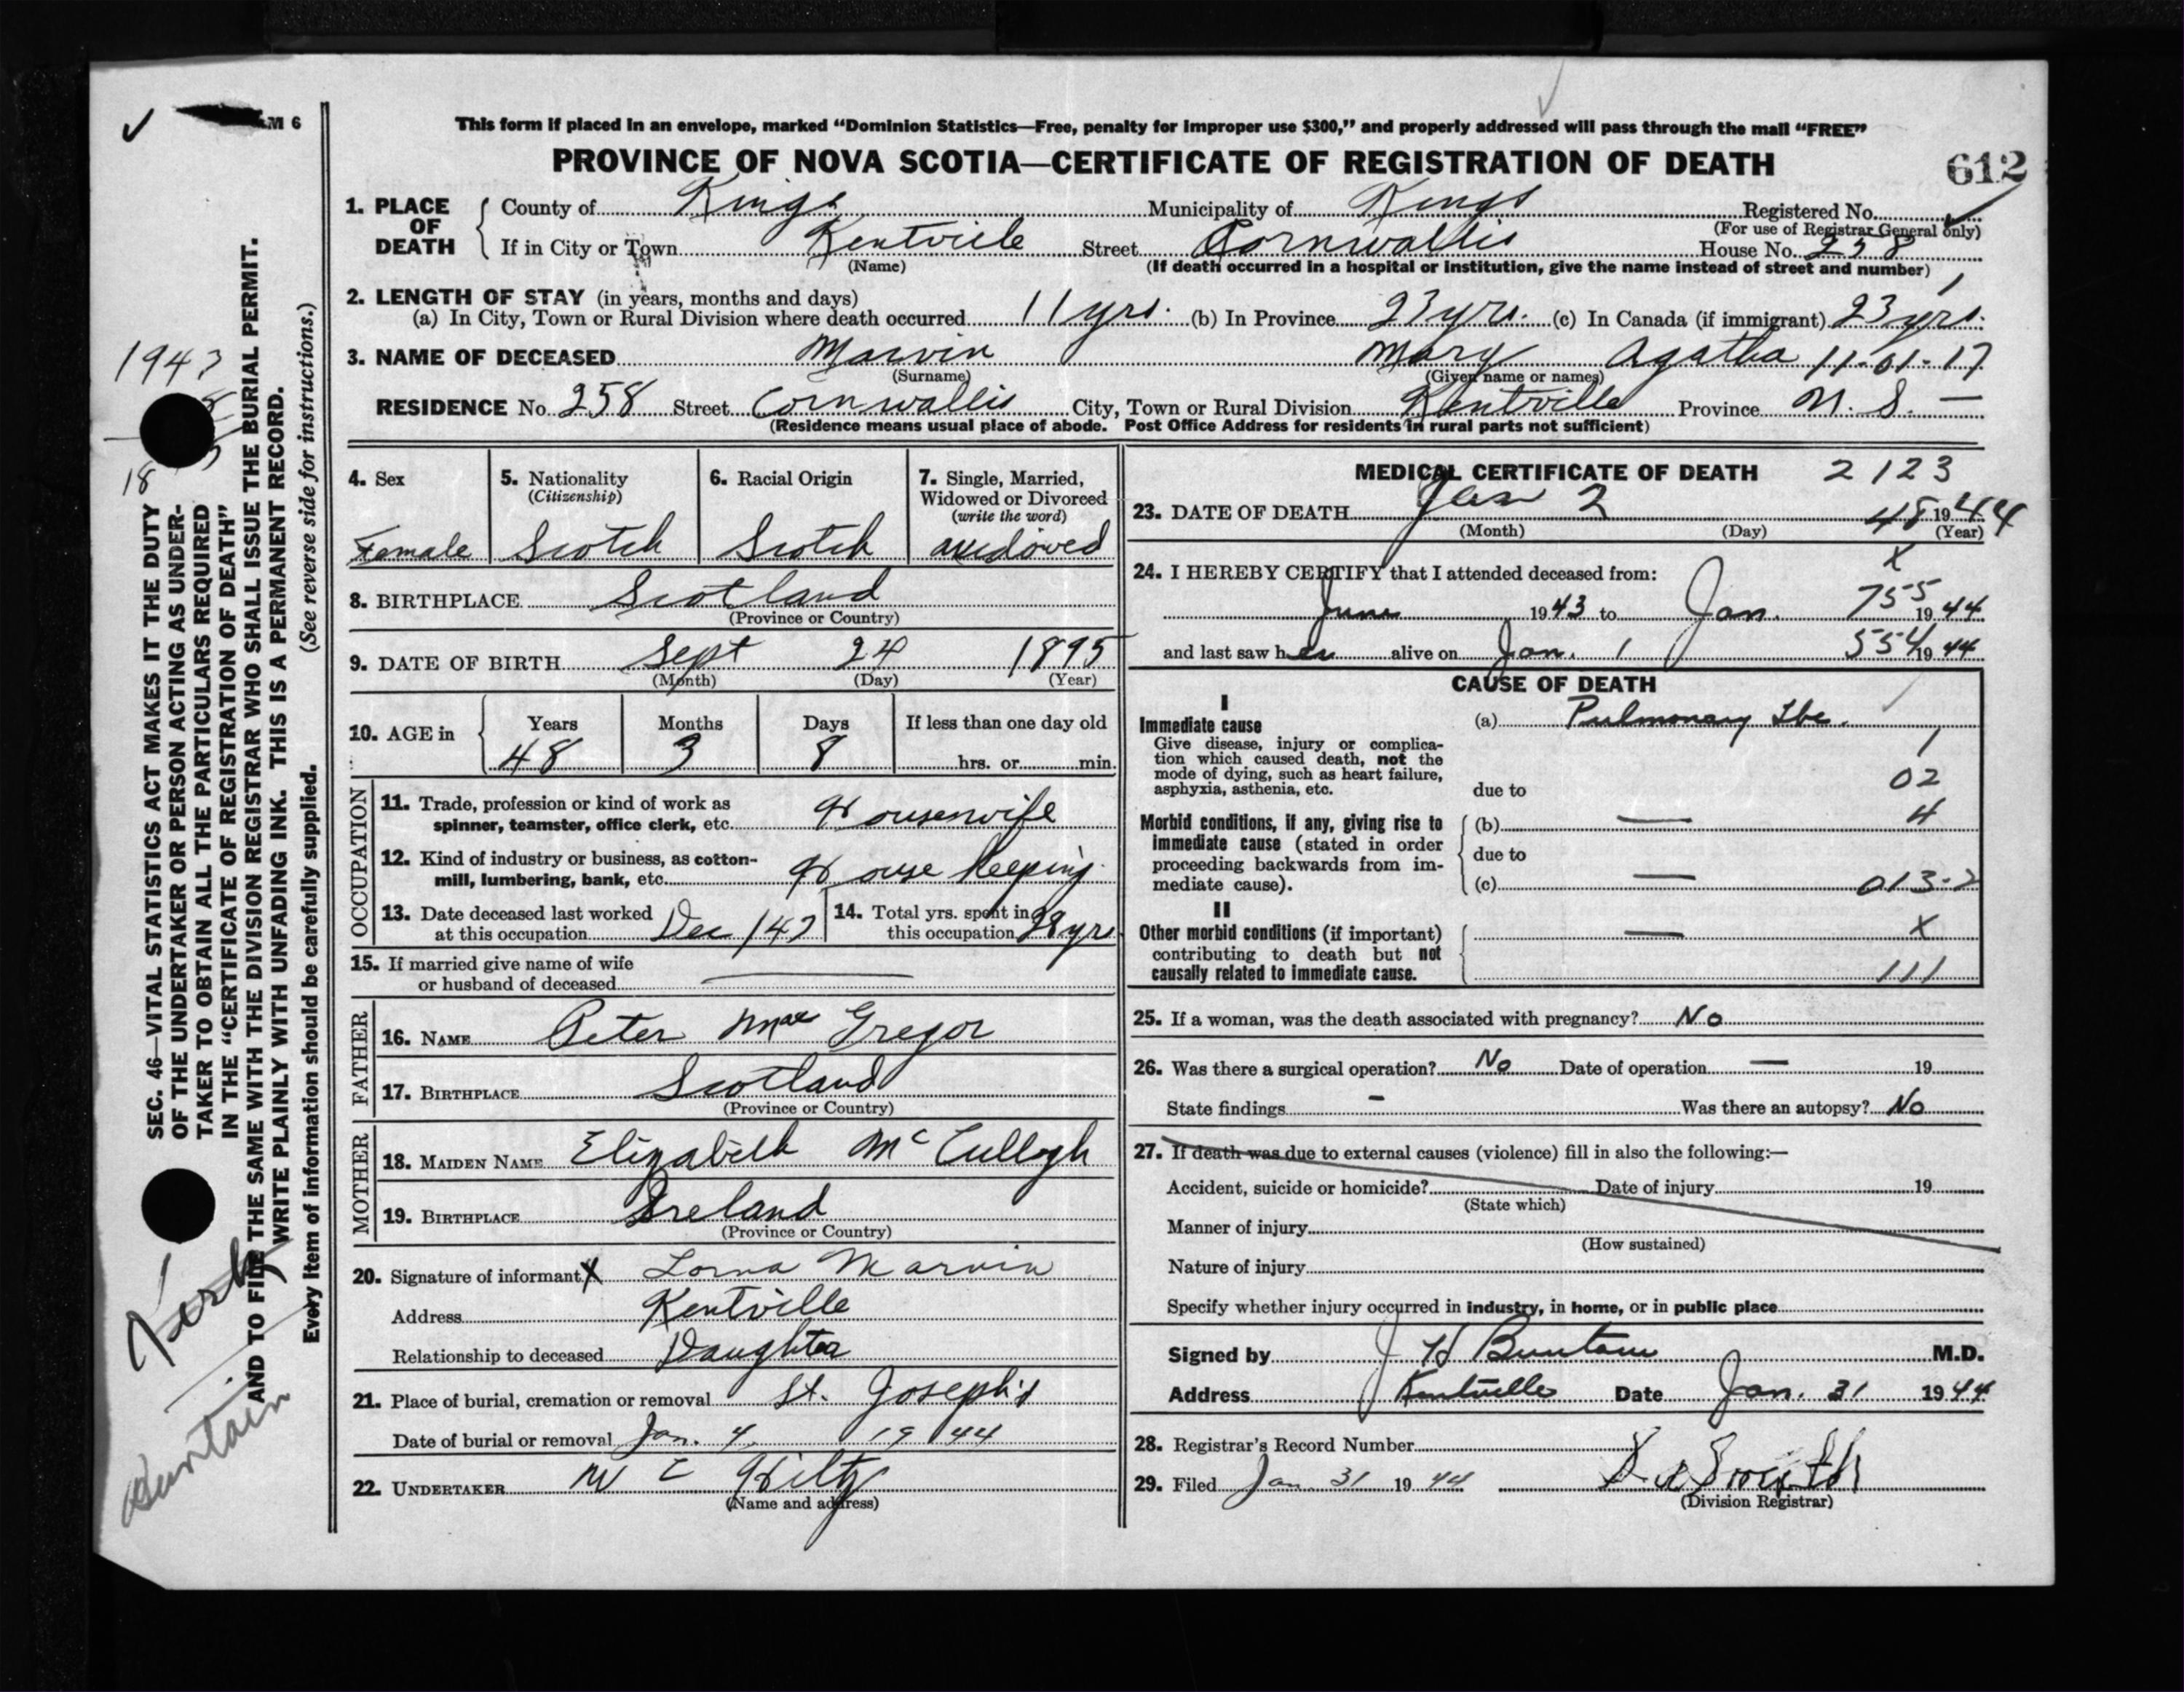 M 6
This form if placed in an envelope, marked “Dominion Statistics—Free, penalty for improper use $300,” and properly addressed will pass through the mail “FREE”
PROVINCE OF NOVA SCOTIA—CERTIFICATE OF REGISTRATION OF DEATH
612
1. PLACE OF DEATH
County of Kings Municipality of Kings Registered No.
(For use of Registrar General only)
If in City or Town Kentville Street Cornwallis House No. 258
(Name) (If death occurred in a hospital or institution, give the name instead of street and number)
2. LENGTH OF STAY (in years, months and days)
(a) In City, Town or Rural Division where death occurred 11 yrs. (b) In Province 23 yrs. (c) In Canada (if immigrant) 23 yrs.
3. NAME OF DECEASED Marvin Mary Agatha 11-01-17
(Surname) (Given name or names)
RESIDENCE No. 258 Street Cornwallis City, Town or Rural Division Kentville Province N. S. —
(Residence means usual place of abode. Post Office Address for residents in rural parts not sufficient)
4. Sex
Female
5. Nationality
(Citizenship)
Scotch
6. Racial Origin
Scotch
7. Single, Married,
Widowed or Divorced
(write the word)
Widowed
8. BIRTHPLACE Scotland
(Province or Country)
9. DATE OF BIRTH Sept 24 1895
(Month) (Day) (Year)
10. AGE in
Years Months Days If less than one day old
48 3 8 hrs. or min.
OCCUPATION
11. Trade, profession or kind of work as
spinner, teamster, office clerk, etc. Housewife
12. Kind of industry or business, as cotton-
mill, lumbering, bank, etc. House keeping
13. Date deceased last worked
at this occupation Dec /42
14. Total yrs. spent in
this occupation 28 yrs
15. If married give name of wife
or husband of deceased
FATHER
16. NAME Peter MacGregor
17. BIRTHPLACE Scotland
(Province or Country)
MOTHER
18. MAIDEN NAME Elizabeth McCullogh
19. BIRTHPLACE Ireland
(Province or Country)
20. Signature of informant X Lorna Marvin
Address Kentville
Relationship to deceased Daughter
21. Place of burial, cremation or removal St. Joseph's
Date of burial or removal Jan. 4, 1944
22. UNDERTAKER W C Hiltz
(Name and address)
MEDICAL CERTIFICATE OF DEATH 2123
23. DATE OF DEATH Jan 2 48 1944
(Month) (Day) (Year)
X
24. I HEREBY CERTIFY that I attended deceased from:
June 1943 to Jan. 755 1944
and last saw her alive on Jan. 1 554 1944
CAUSE OF DEATH
I
Immediate cause (a) Pulmonary Tbc.
Give disease, injury or complica-
tion which caused death, not the
mode of dying, such as heart failure,
asphyxia, asthenia, etc. due to
1
02
4
Morbid conditions, if any, giving rise to (b) —
immediate cause (stated in order due to
proceeding backwards from im-
mediate cause). (c) — 013-2
II
Other morbid conditions (if important) — X
contributing to death but not
causally related to immediate cause. 111
25. If a woman, was the death associated with pregnancy? No
26. Was there a surgical operation? No Date of operation — 19
State findings - Was there an autopsy? No
27. If death was due to external causes (violence) fill in also the following:—
Accident, suicide or homicide? Date of injury 19
(State which)
Manner of injury
(How sustained)
Nature of injury
Specify whether injury occurred in industry, in home, or in public place
Signed by J H Buntain M.D.
Address Kentville Date Jan. 31 1944
28. Registrar's Record Number
29. Filed Jan. 31 1944
(Division Registrar)
SEC. 46—VITAL STATISTICS ACT MAKES IT THE DUTY
OF THE UNDERTAKER OR PERSON ACTING AS UNDER-
TAKER TO OBTAIN ALL THE PARTICULARS REQUIRED
IN THE “CERTIFICATE OF REGISTRATION OF DEATH”
AND TO FILE THE SAME WITH THE DIVISION REGISTRAR WHO SHALL ISSUE THE BURIAL PERMIT.
WRITE PLAINLY WITH UNFADING INK. THIS IS A PERMANENT RECORD.
Every item of information should be carefully supplied. (See reverse side for instructions.)
1943
18
Buntain